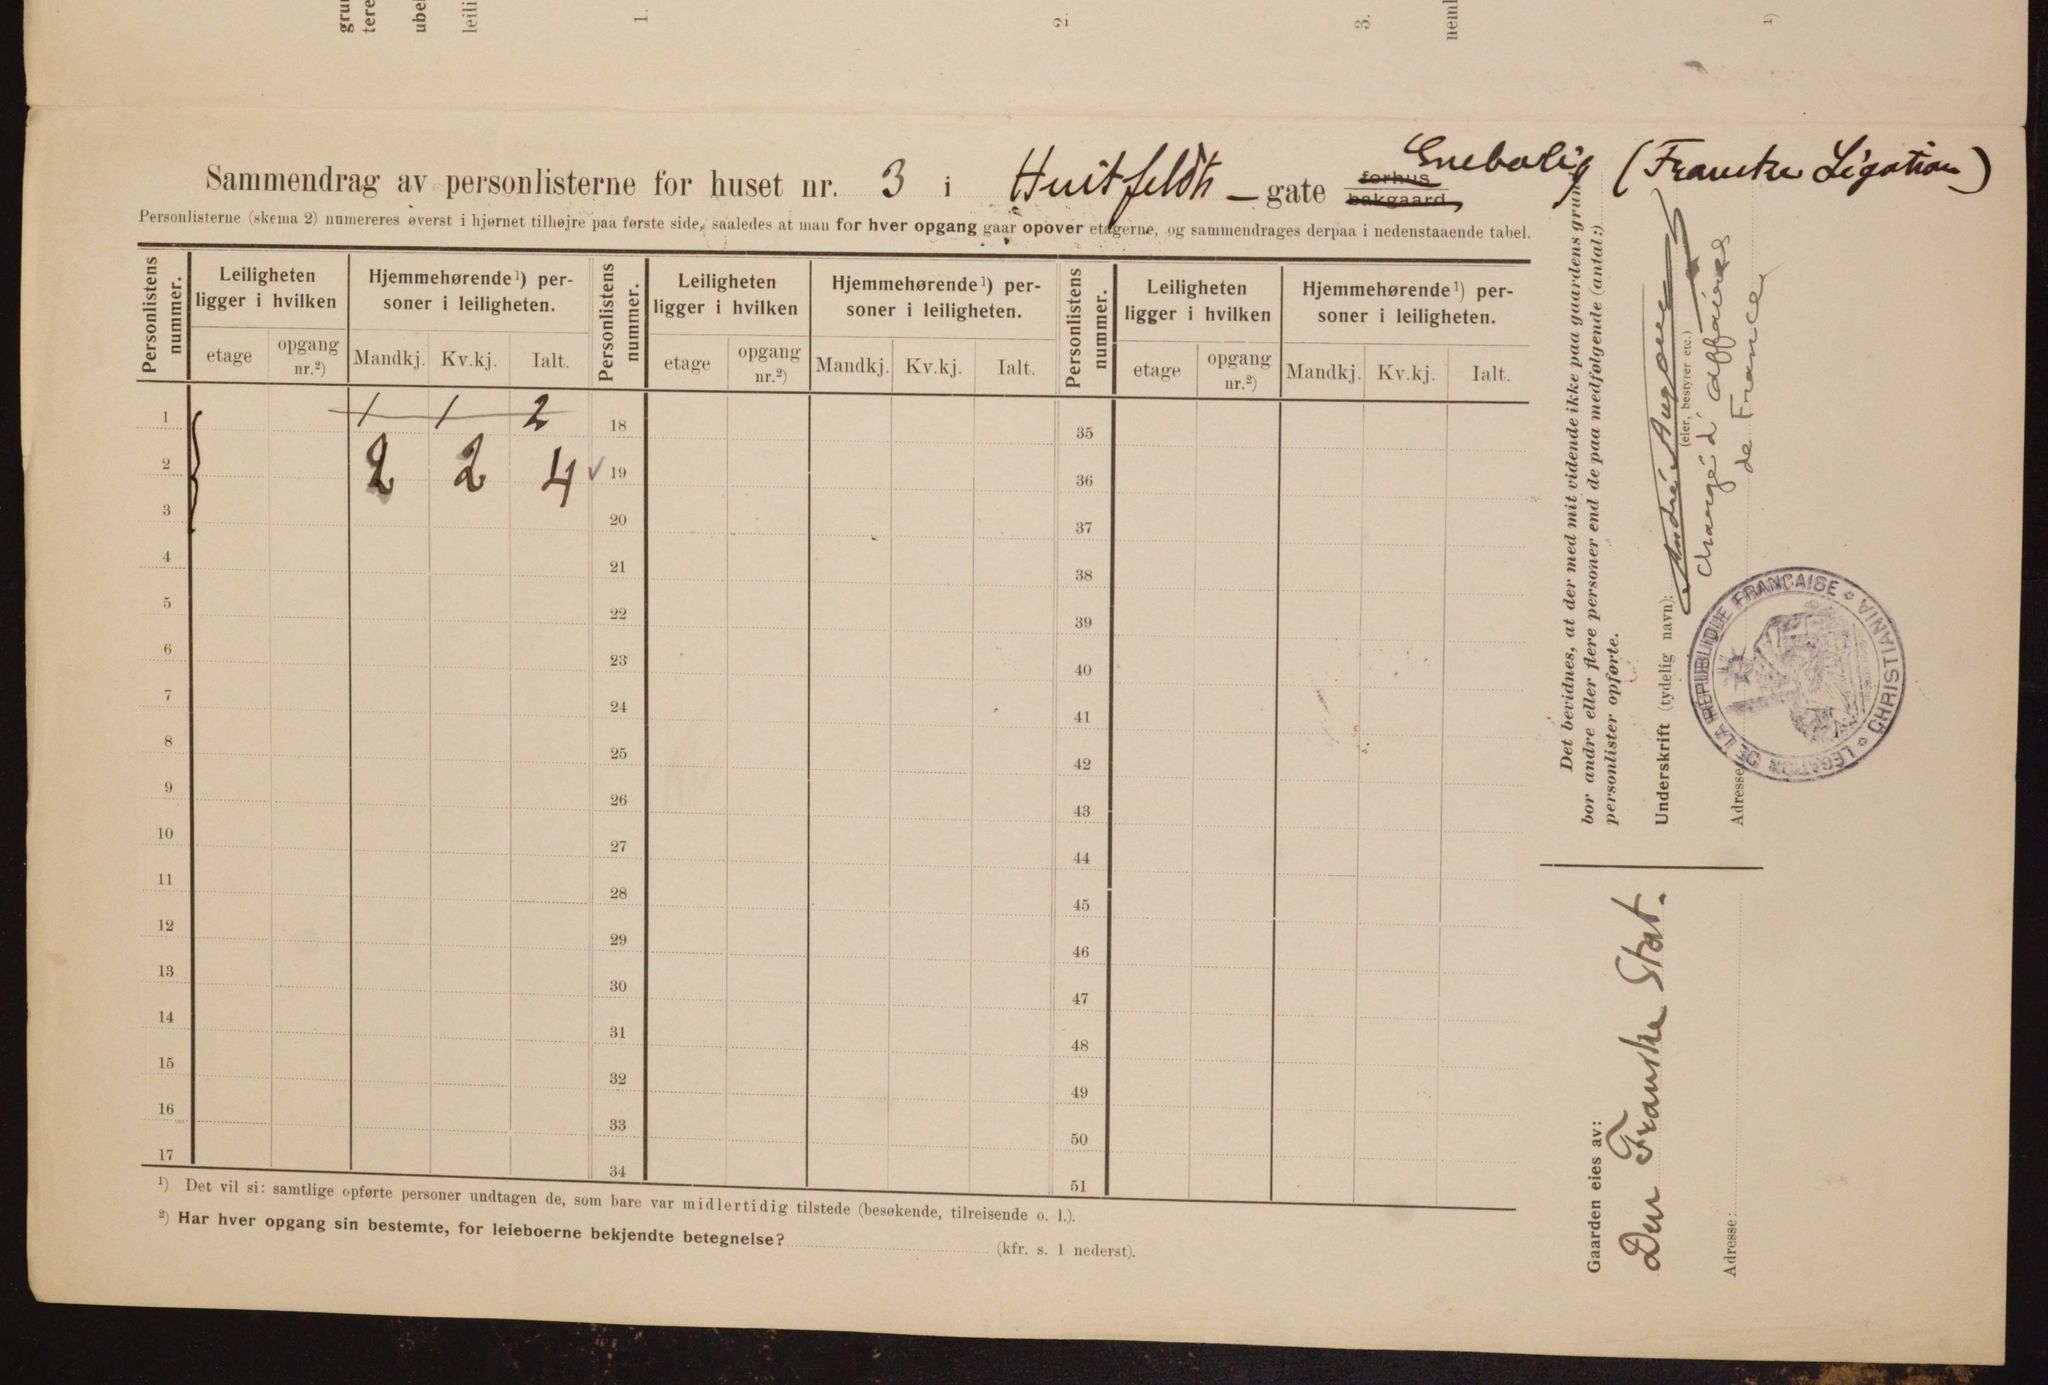 grun
tere
ube
leili
1.
2.
3.
neml
1)
Enebolig (Franske Legation)
Sammendrag av personlisterne for huset nr. 3 i Huitfeldts – gate forhus bakgaard
Personlisterne (skema 2) numereres øverst i hjørnet tilhøjre paa første side, saaledes at man for hver opgang gaar opover etagerne, og sammendrages derpaa i nedenstaaende tabel.
Personlistens nummer. Leiligheten ligger i hvilken Hjemmehørende¹) personer i leiligheten. Personlistens nummer. Leiligheten ligger i hvilken Hjemmehørende¹) personer i leiligheten. Personlistens nummer. Leiligheten ligger i hvilken Hjemmehørende¹) personer i leiligheten.
etage opgang nr.²) Mandkj. Kv.kj. Ialt. etage opgang nr.²) Mandkj. Kv.kj. Ialt. etage opgang nr.²) Mandkj. Kv.kj. Ialt.
1 1 1 2 18 35
2 2 2 4 19 36
3 20 37
4 21 38
5 22 39
6 23 40
7 24 41
8 25 42
9 26 43
10 27 44
11 28 45
12 29 46
13 30 47
14 31 48
15 32 49
16 33 50
17 34 51
¹) Det vil si: samtlige opførte personer undtagen de, som bare var midlertidig tilstede (besøkende, tilreisende o. l.).
²) Har hver opgang sin bestemte, for leieboerne bekjendte betegnelse? (kfr. s. 1 nederst).
Det bevidnes, at der med mit vidende ikke paa gaardens grun
bor andre eller flere personer end de paa medfølgende (antal:)
personlister opførte.
Underskrift (tydelig navn):
(eier, bestyrer etc.)
chargé d'affaires
de France
Adresse
LEGATION DE LA REPUBLIQUE FRANCAISE CHRISTIANIA
Gaarden eies av:
Den Franske Stat.
Adresse: